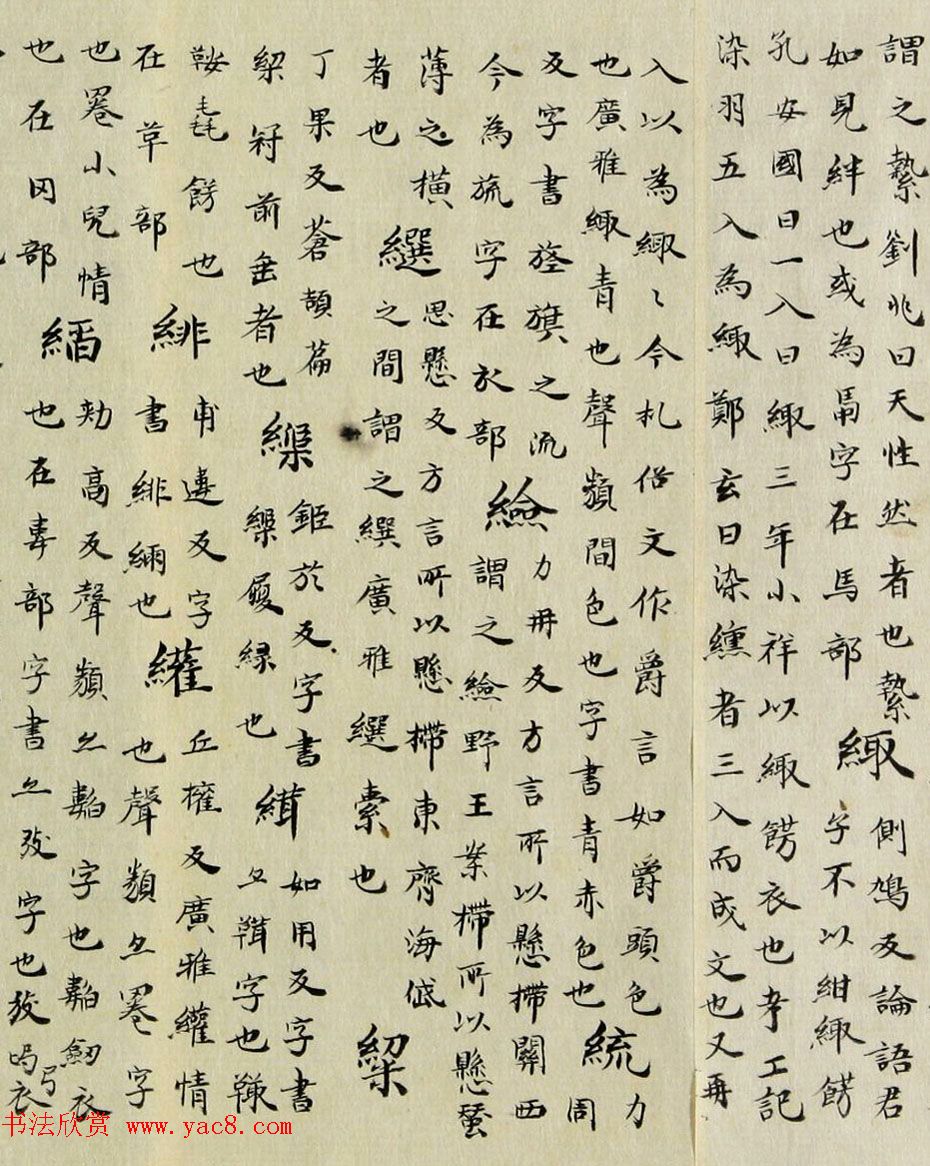 謂之縶劉兆曰天性然者也縶
如見絆也或為馽字在馬部
緅
側鳩反論語君
子不以紺緅餝
孔安國曰一入曰緅三年小祥以緅餝衣也考工記
染羽五入為緅鄭玄曰染纁者三入而成文也又再
入以為緅〻今札俗文作爵言如爵頭色
也廣雅緅青也聲類間色也字書青赤色也
統
力
周
反字書旌旗之流
今為旒字在㫃部
力冉反方言所以懸㯂關西
謂之野王案㯂所以懸蠶
薄之橫
者也
繏
思懸反方言所以懸㯂東齊海岱
之間謂之繏廣雅繏索也
丁果反蒼頡篇
冠前垂者也
鉅於反字書
履緣也
緝
如用反字書
亦字也
毳餝也
在革部
緋
甫違反字
書緋也
纙
丘權反廣雅纙情
也聲類亦卷字
也卷小兒情
也在部
縚
効高反聲類亦字也劒衣
也在韋部字書亦弢字也弢弓衣
书法欣赏 www.yac8.com